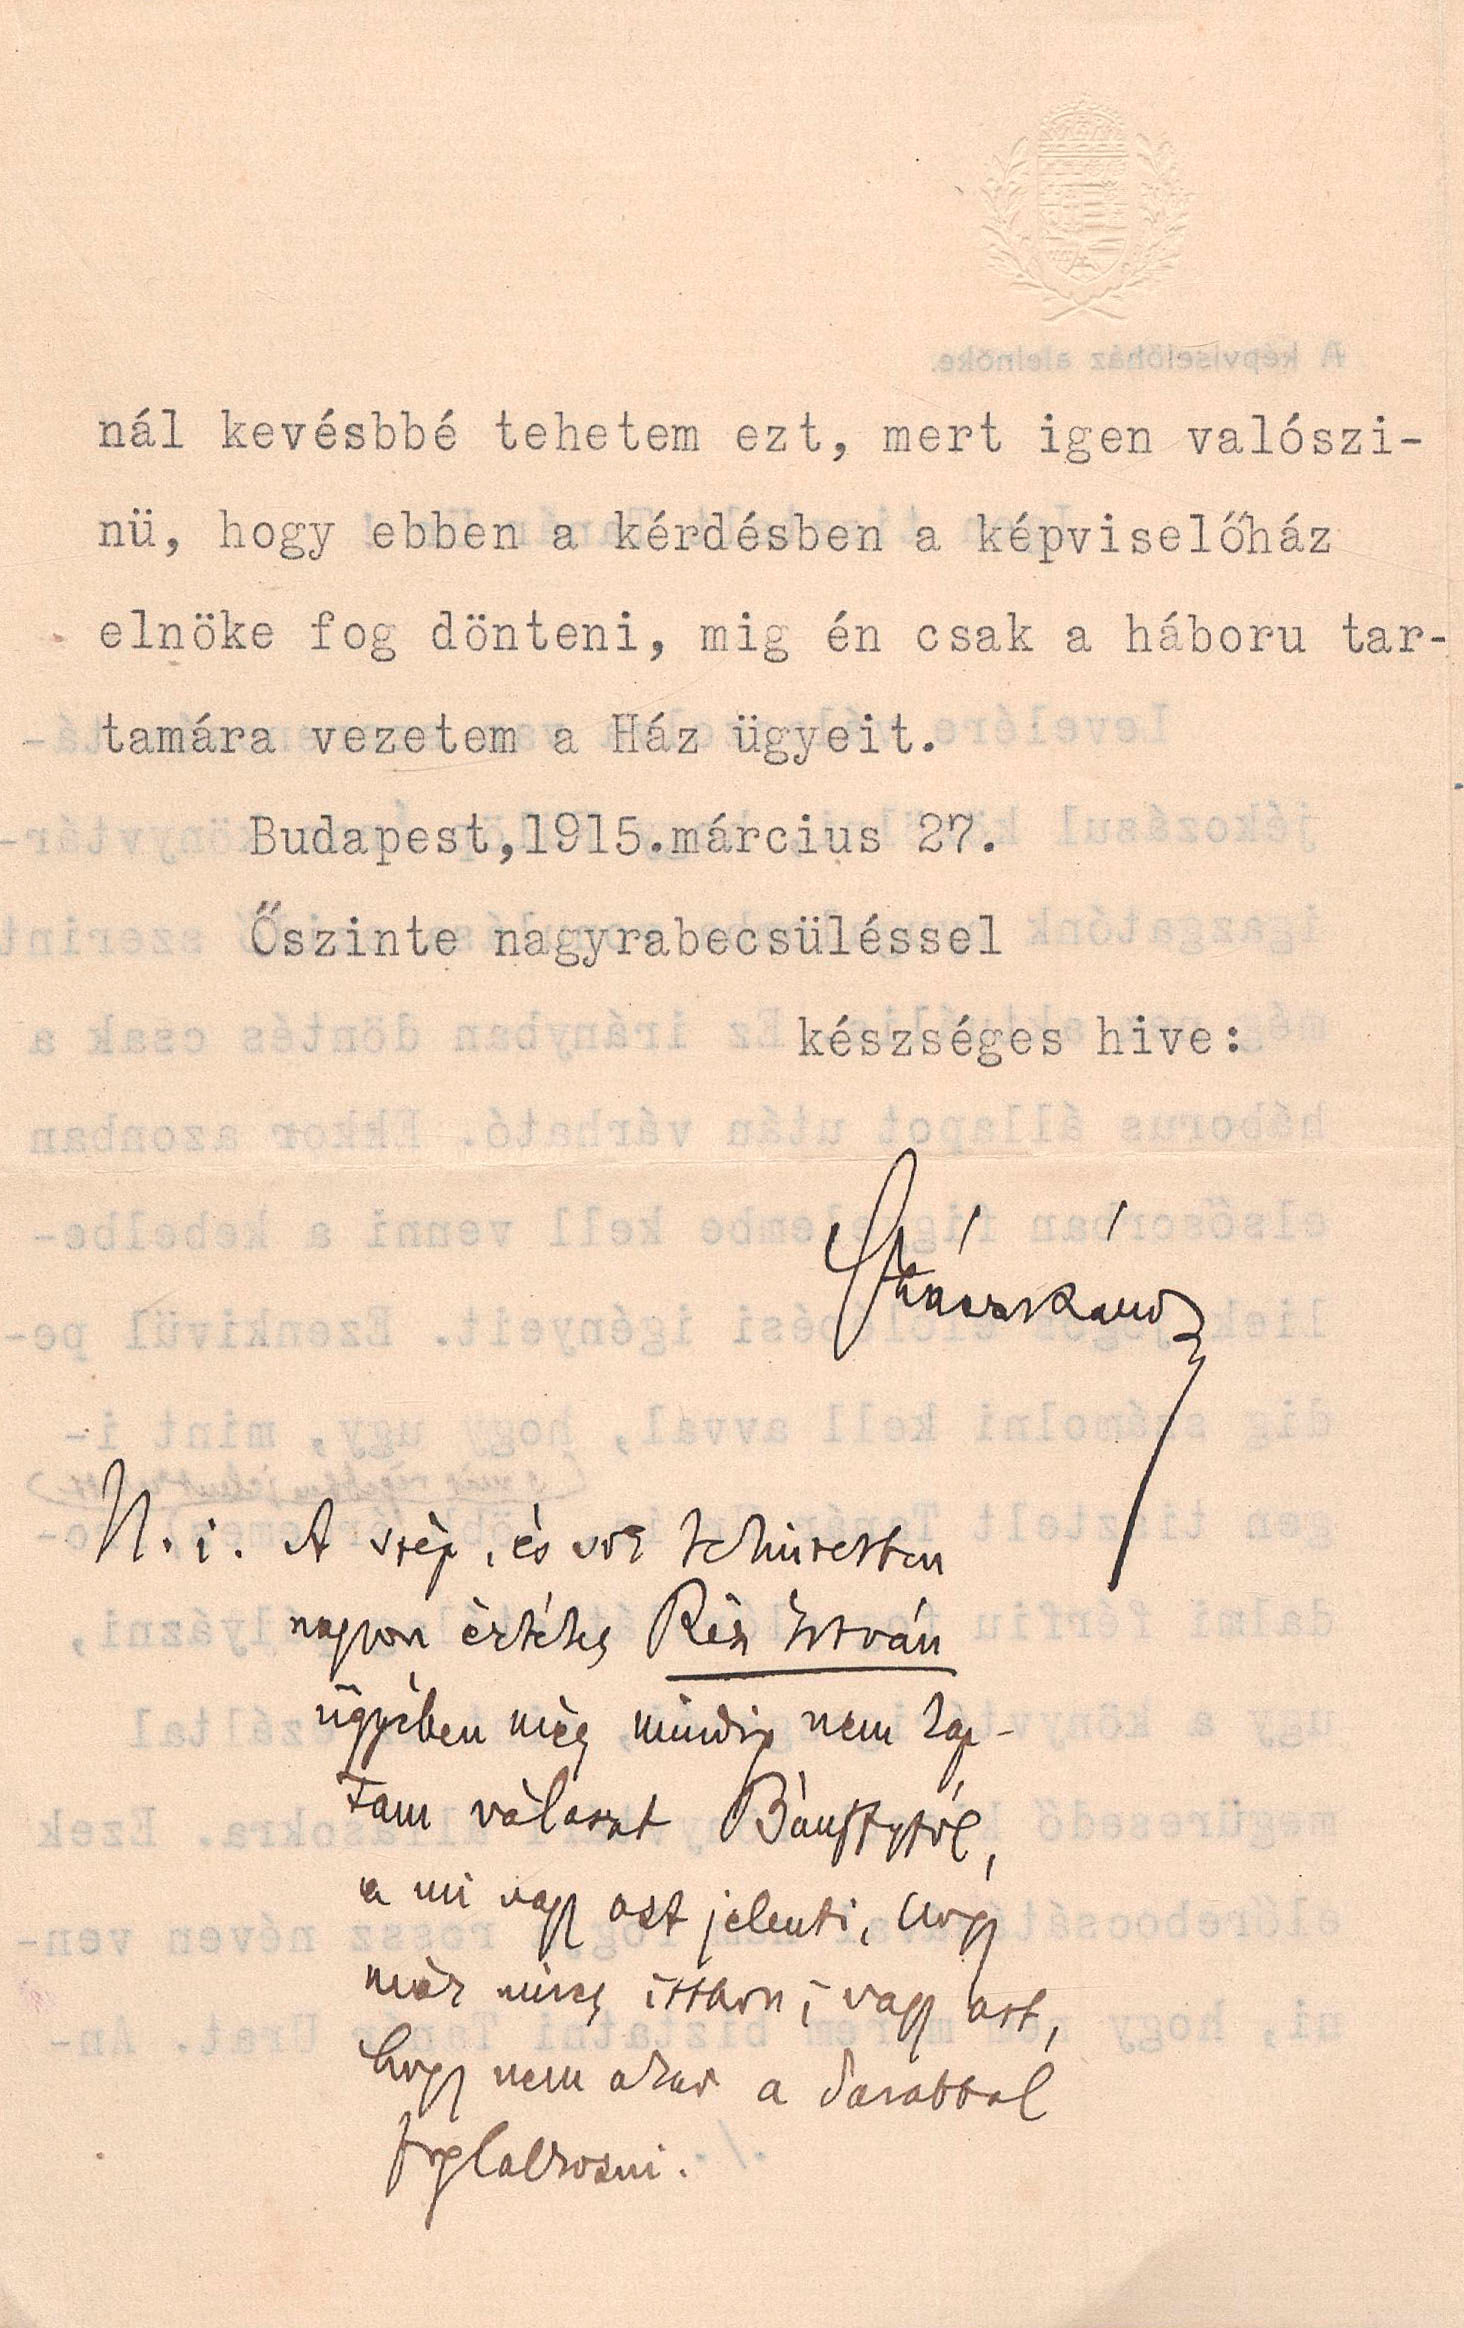 nál kevésbbé tehetem ezt, mert igen valószi-
nü, hogy ebben a kérdésben a képviselőház
elnöke fog dönteni, mig én csak a háboru tar-
tamára vezetem a Ház ügyeit.
Budapest,1915.március 27.
Őszinte nagyrabecsüléssel
készséges hive:
Szász Károly
U. i. A szép, és sok tekintetben
nagyon értékes István
ügyében még mindig nem kap-
tam választ Bánffytól,
a mi vagy azt jelenti, hogy
már nincs itthon; vagy azt,
hogy nem akar a darabbal
foglalkozni.